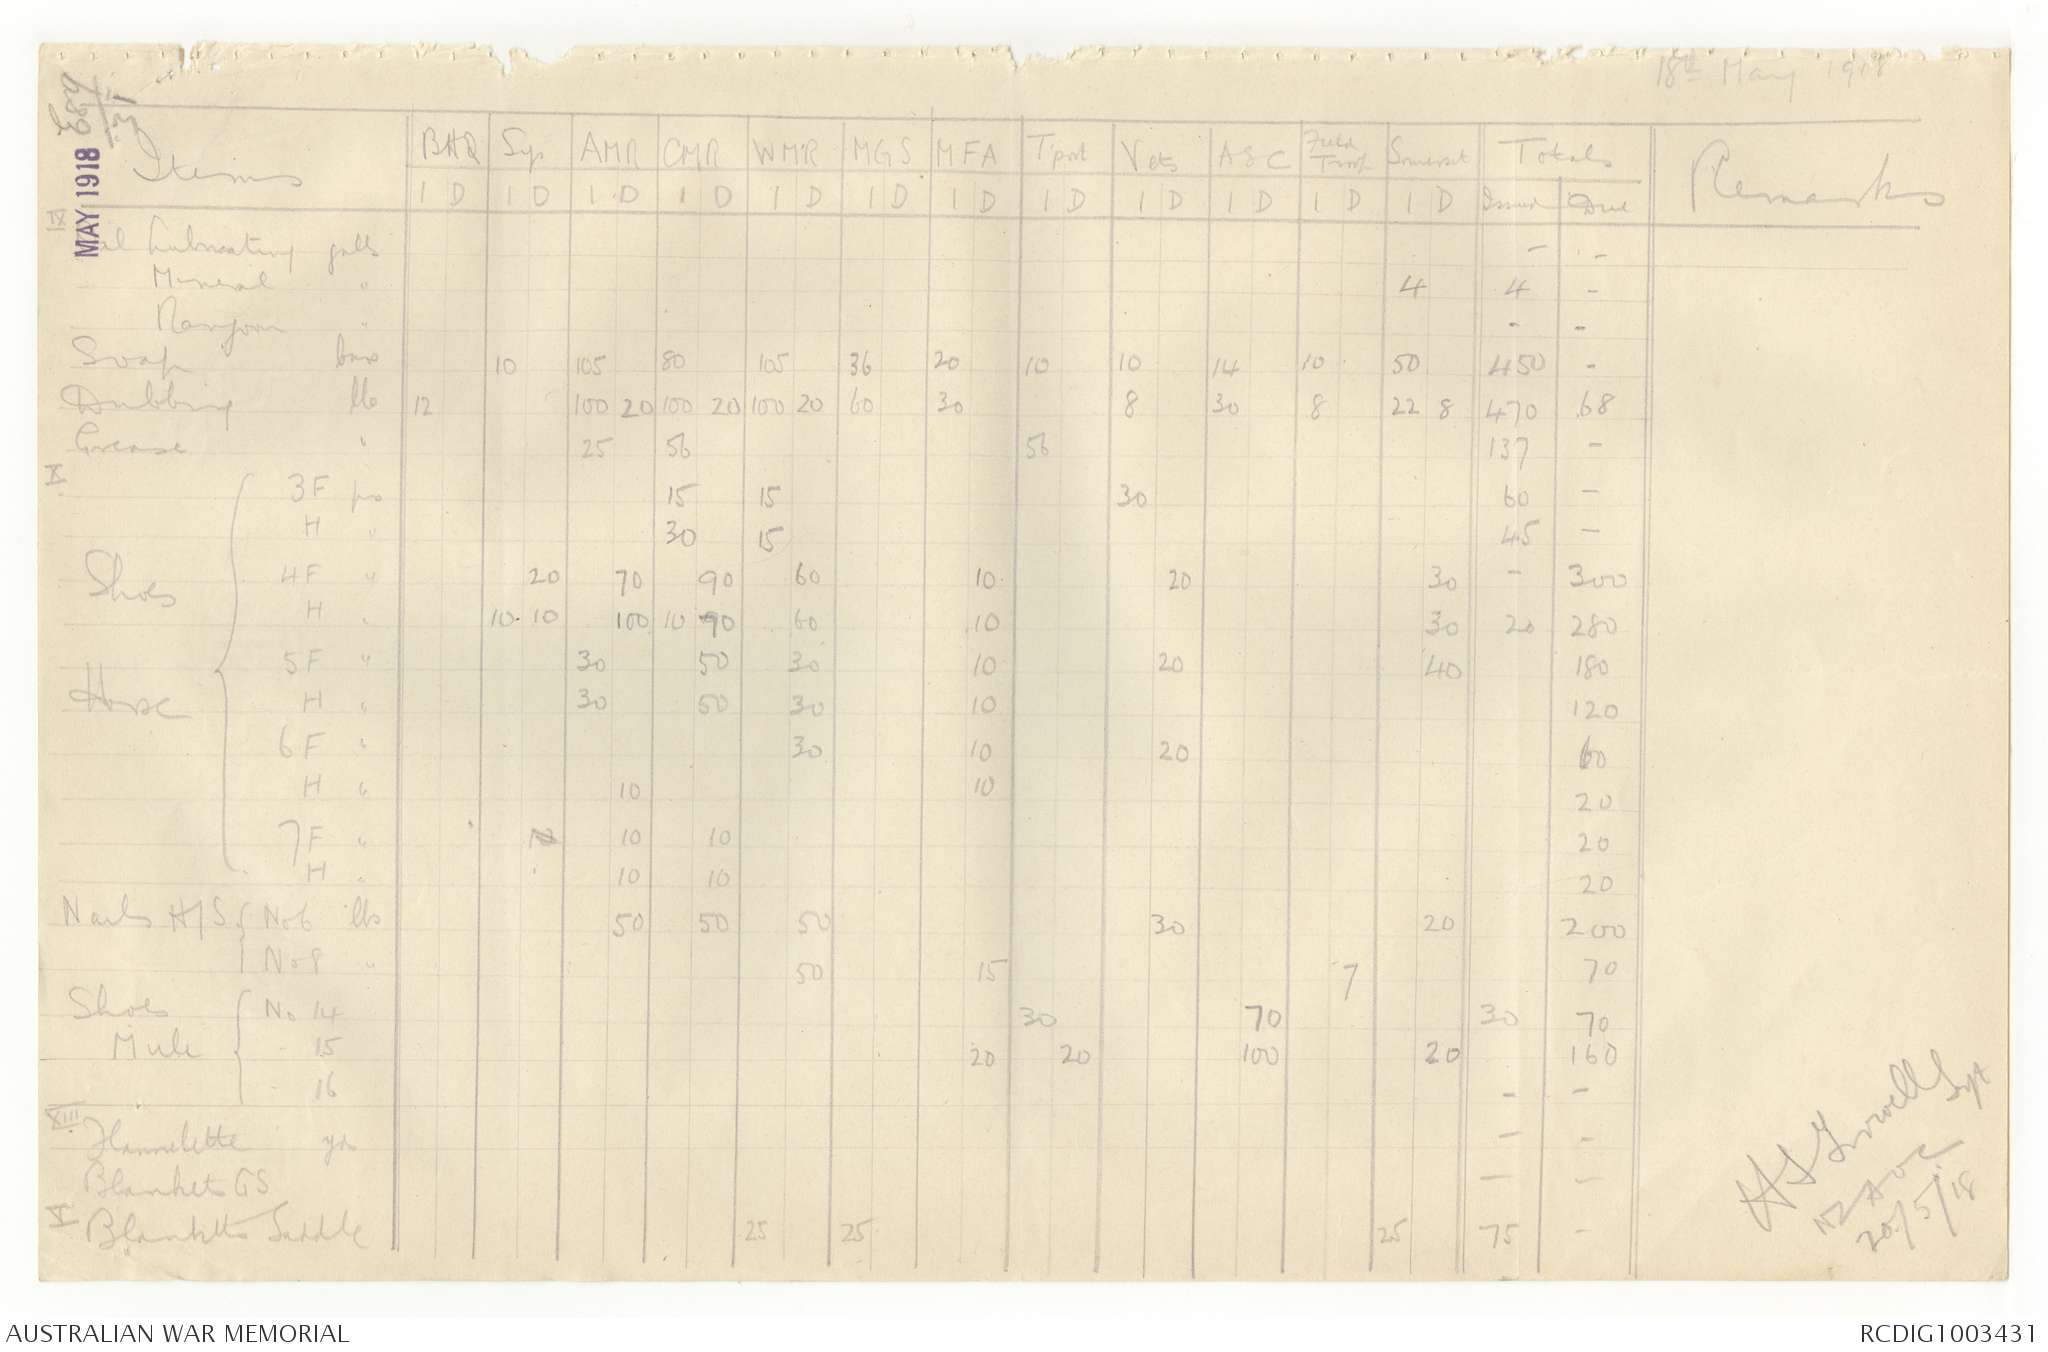 18th May 1918
MAY 1918
Items BHQ Sigs AMR CMR WMR MGS MFA T'port Vets ASC Field Troop Somerset Totals Remarks
I D I D I D I D I D I D I D I D I D I D I D I D Issued Due
IX
Oil Lubricating galls - -
Mineral " 4 4 -
Rangoon " - -
Soap bars 10 105 80 105 36 20 10 10 14 10 50 450 -
Dubbing lbs 12 100 20 100 20 100 20 60 30 8 30 8 22 8 470 68
Grease " 25 56 56 137 -
X
3F prs 15 15 30 60 -
H " 30 15 45 -
Shoes 4F " 20 70 90 60 10 20 30 - 300
H " 10 10 100 10 90 60 10 30 20 280
5F " 30 50 30 10 20 40 180
Horse H " 30 50 30 10 120
6F " 30 10 20 60
H " 10 10 20
7F " 10 10 10 20
H " 10 10 20
Nails H/S No 6 lbs 50 50 50 30 20 200
No 8 " 50 15 7 70
Shoes No 14 30 70 30 70
Mule - 15 20 20 100 20 160
- 16 - -
XIII
Flannelette yds - -
Blankets GS - -
X
Blankets Saddle 25 25 25 75 -
Sgt
NZAOC
20/5/18
AUSTRALIAN WAR MEMORIAL
RCDIG1003431